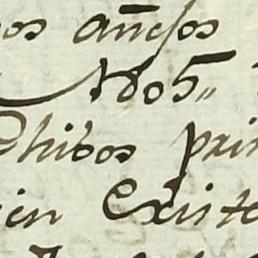 os añejos
1805,,
Chibos pri
in Existe